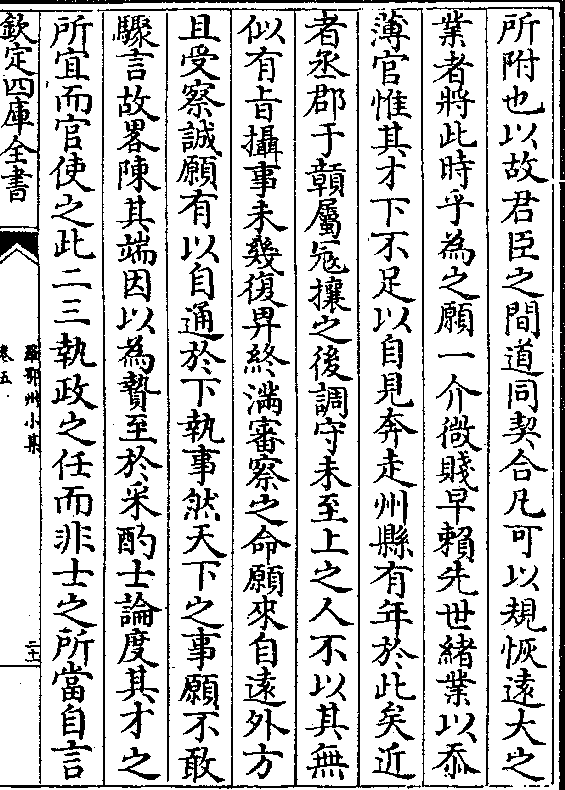 所附也以故君臣之間道同契合凡可以規恢遠大之
業者將此時乎為之願一介微賤早賴先世緒業以忝
薄官惟其才下不足以自見奔走州縣有年於此矣近
者丞郡于贛屬冦攘之後調守未至上之人不以其無
似有㫖攝事未幾復畀終滿審察之命願來自遠外方
且受察誠願有以自通於下執事然天下之事願不敢
驟言故畧陳其端因以為贄至於采酌士論度其才之
所宜而官使之此二三執政之任而非士之所當自言
欽定四庫全書
羅鄂州小集
卷五
二十